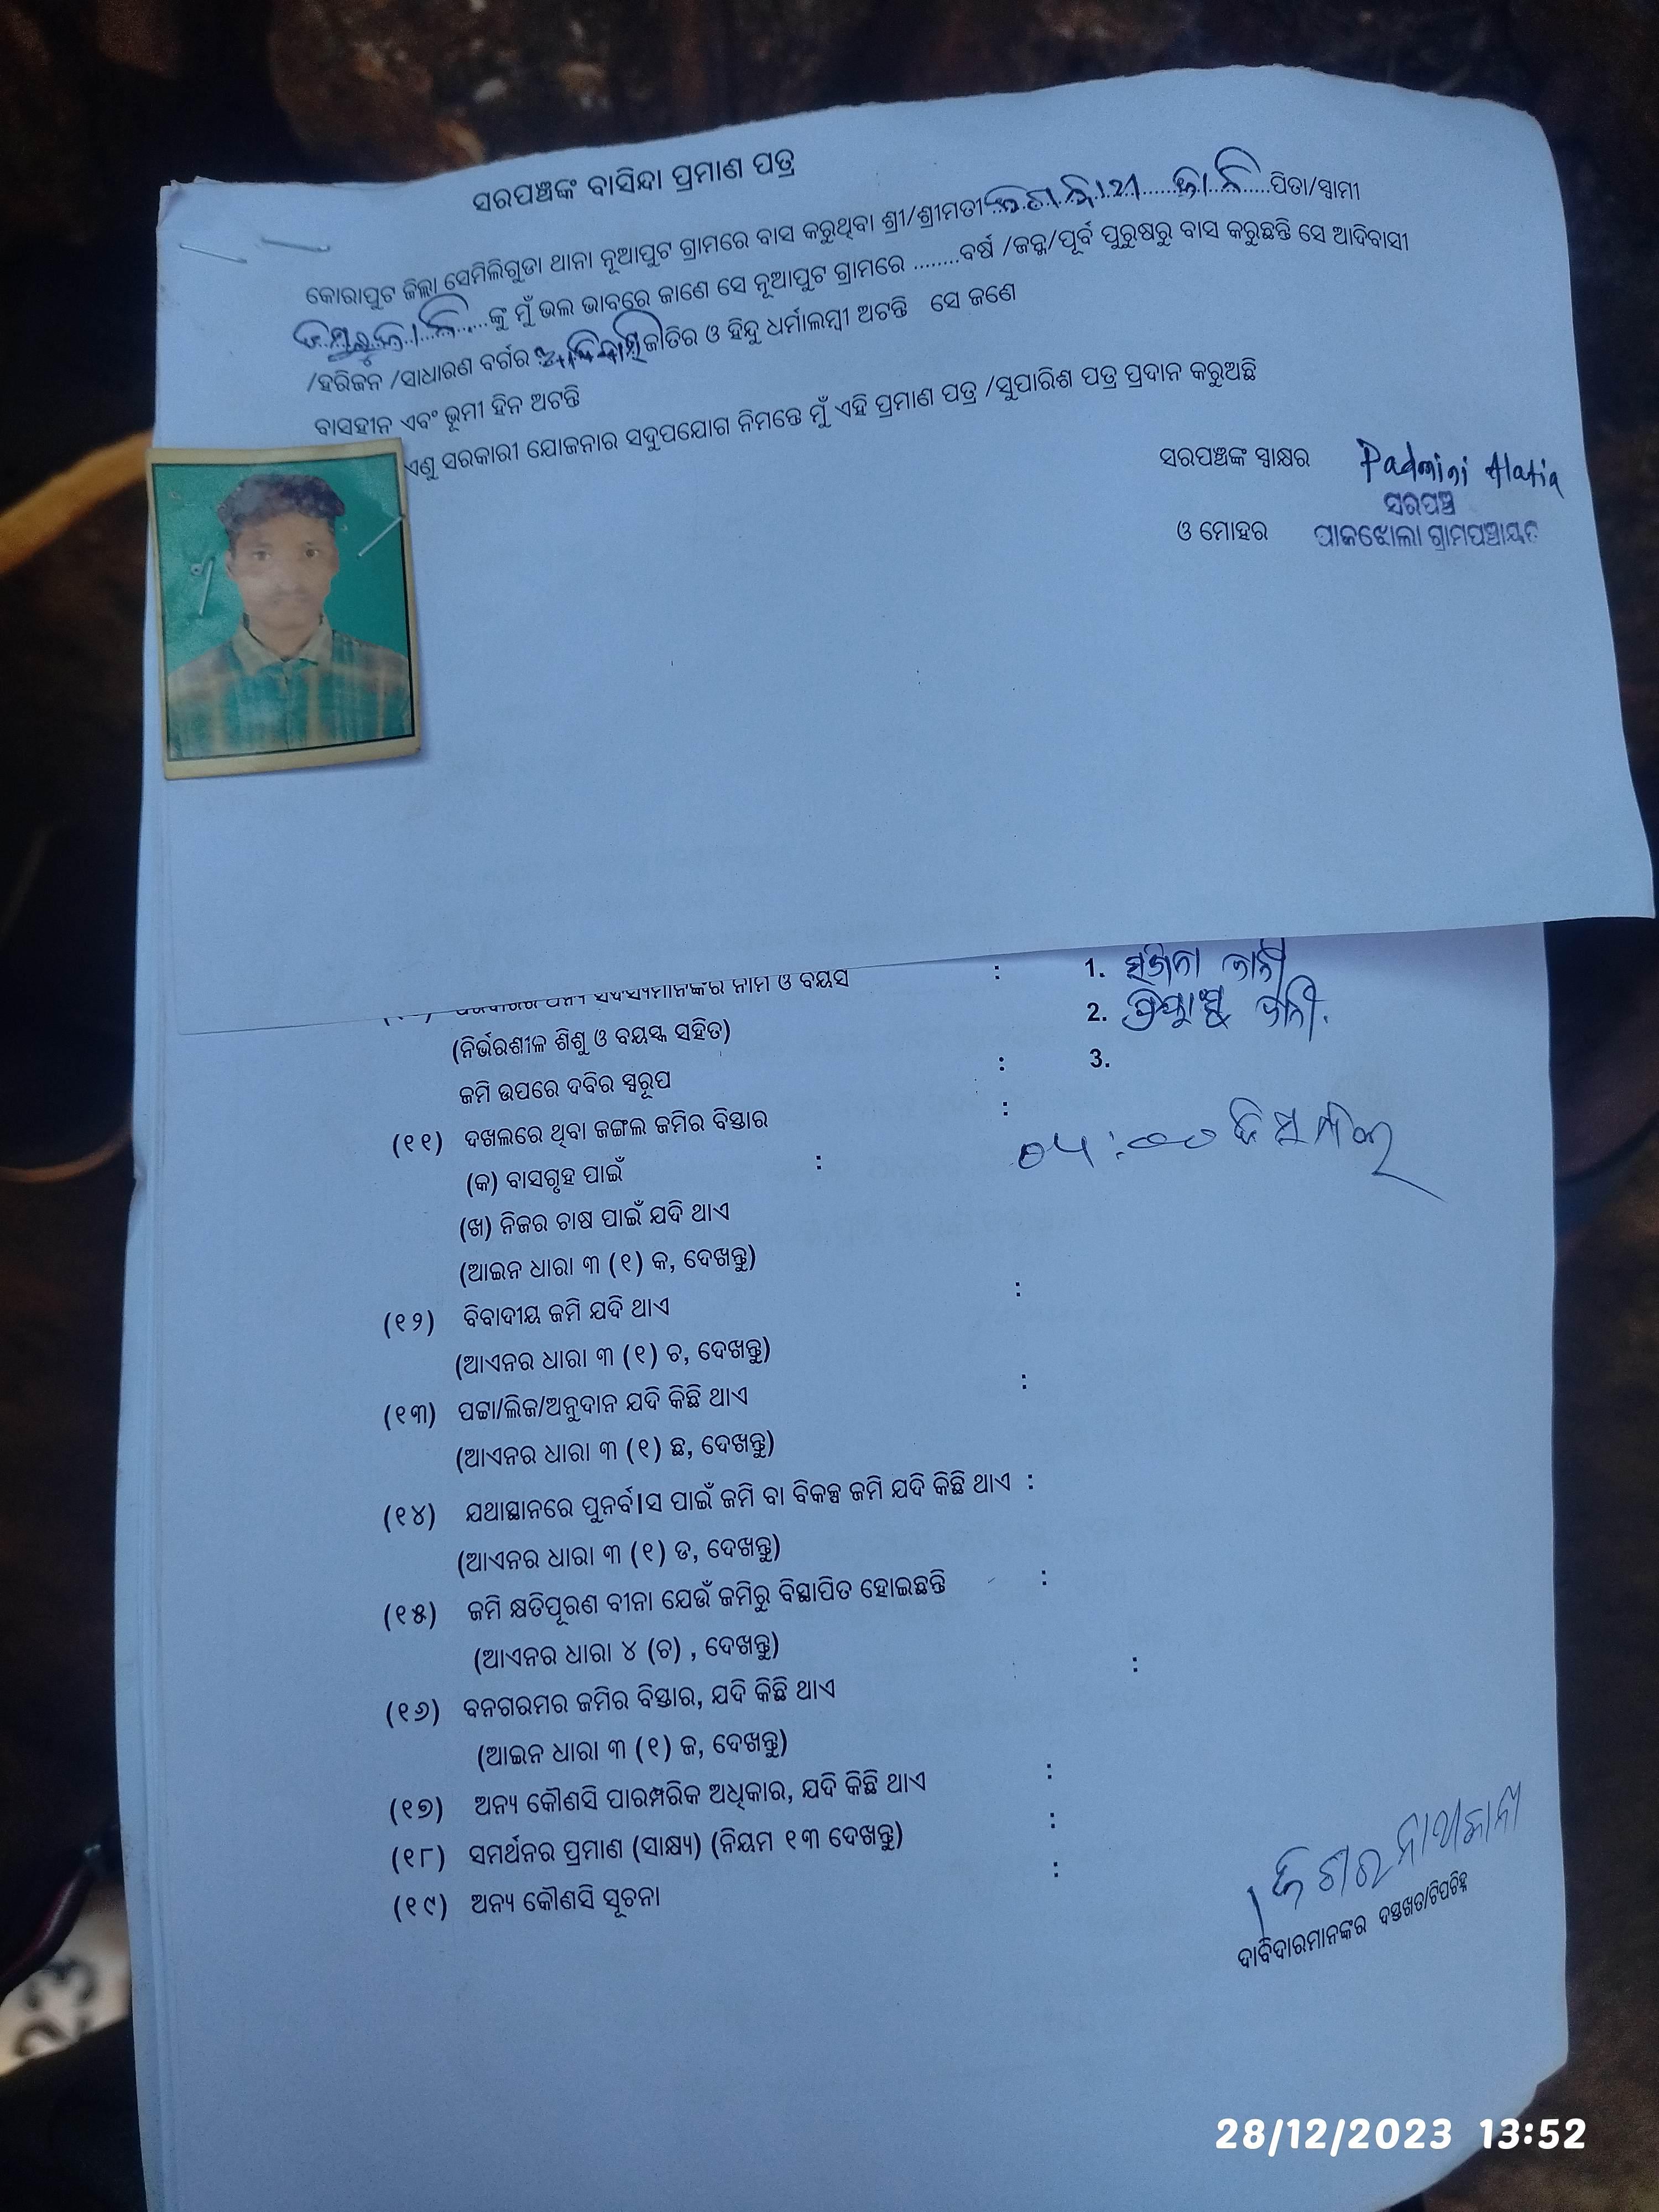 ସରପଞ୍ଚଙ୍କ ବାସିନ୍ଦା ପ୍ରମାଣ ପତ୍ର
କୋରାପୁଟ ଜିଲ୍ଲା ସେମିଲିଗୁଡା ଥାନା ନୂଆପୁଟ ଗ୍ରାମରେ ବାସ କରୁଥିବା ଶ୍ରୀ/ଶ୍ରୀମତୀ ପିତା/ସ୍ଵାମୀ
ଙ୍କୁ ମୁଁ ଭଲ ଭାବରେ ଜାଣେ ସେ ନୂଆପୁଟ ଗ୍ରାମରେ ........ବର୍ଷ /ଜନ୍ମ/ପୂର୍ବ ପୁରୁଷରୁ ବାସ କରୁଛନ୍ତି ସେ ଆଦିବାସୀ
/ହରିଜନ /ସାଧାରଣ ବର୍ଗର ଆଦିବାସି ଜାତିର ଓ ହିନ୍ଦୁ ଧର୍ମାଲମ୍ବୀ ଅଟନ୍ତି ସେ ଜଣେ
ବାସହୀନ ଏବଂ ଭୂମୀ ହିନ ଅଟନ୍ତି
ଏଣୁ ସରକାରୀ ଯୋଜନାର ସଦୁପଯୋଗ ନିମନ୍ତେ ମୁଁ ଏହି ପ୍ରମାଣ ପତ୍ର /ସୁପାରିଶ ପତ୍ର ପ୍ରଦାନ କରୁଅଛି
ସରପଞ୍ଚଙ୍କ ସ୍ୱାକ୍ଷର Padmini
ସରପଞ୍ଚ
ଓ ମୋହର ପାକଝୋଲା ଗ୍ରାମପଞ୍ଚାୟତ
ସଦସ୍ୟମାନଙ୍କର ନାମ ଓ ବୟସ : 1. ଜାନୀ
(ନିର୍ଭରଶୀଳ ଶିଶୁ ଓ ବୟସ୍କ ସହିତ) 2. ଜାନୀ.
ଜମି ଉପରେ ଦବିର ସ୍ୱରୂପ : 3.
(୧୧) ଦଖଲରେ ଥିବା ଜଙ୍ଗଲ ଜମିର ବିସ୍ତାର :
(କ) ବାସଗୃହ ପାଇଁ :
(ଖ) ନିଜର ଚାଷ ପାଇଁ ଯଦି ଥାଏ
(ଆଇନ ଧାରା ୩ (୧) କ, ଦେଖନ୍ତୁ)
(୧୨) ବିବାଦୀୟ ଜମି ଯଦି ଥାଏ :
(ଆଏନର ଧାରା ୩ (୧) ଚ, ଦେଖନ୍ତୁ)
(୧୩) ପଟ୍ଟା/ଲିଜ/ଅନୁଦାନ ଯଦି କିଛି ଥାଏ :
(ଆଏନର ଧାରା ୩ (୧) ଛ, ଦେଖନ୍ତୁ)
(୧୪) ଯଥାସ୍ଥାନରେ ପୁନର୍ବାସ ପାଇଁ ଜମି ବା ବିକଳ୍ପ ଜମି ଯଦି କିଛି ଥାଏ :
(ଆଏନର ଧାରା ୩ (୧) ଡ, ଦେଖନ୍ତୁ)
(୧୫) ଜମି କ୍ଷତିପୂରଣ ବୀନା ଯେଉଁ ଜମିରୁ ବିସ୍ଥାପିତ ହୋଇଛନ୍ତି :
(ଆଏନର ଧାରା ୪ (ଚ) , ଦେଖନ୍ତୁ)
(୧୬) ବନଗରମର ଜମିର ବିସ୍ତାର, ଯଦି କିଛି ଥାଏ :
(ଆଇନ ଧାରା ୩ (୧) ଜ, ଦେଖନ୍ତୁ)
(୧୭) ଅନ୍ୟ କୌଣସି ପାରମ୍ପରିକ ଅଧିକାର, ଯଦି କିଛି ଥାଏ :
(୧୮) ସମର୍ଥନର ପ୍ରମାଣ (ସାକ୍ଷ୍ୟ) (ନିୟମ ୧୩ ଦେଖନ୍ତୁ) :
(୧୯) ଅନ୍ୟ କୌଣସି ସୂଚନା :
ଦାବିଦାରମାନଙ୍କର ଦସ୍ତଖତ/ଟିପଚିହ୍ନ
28/12/2023 13:52